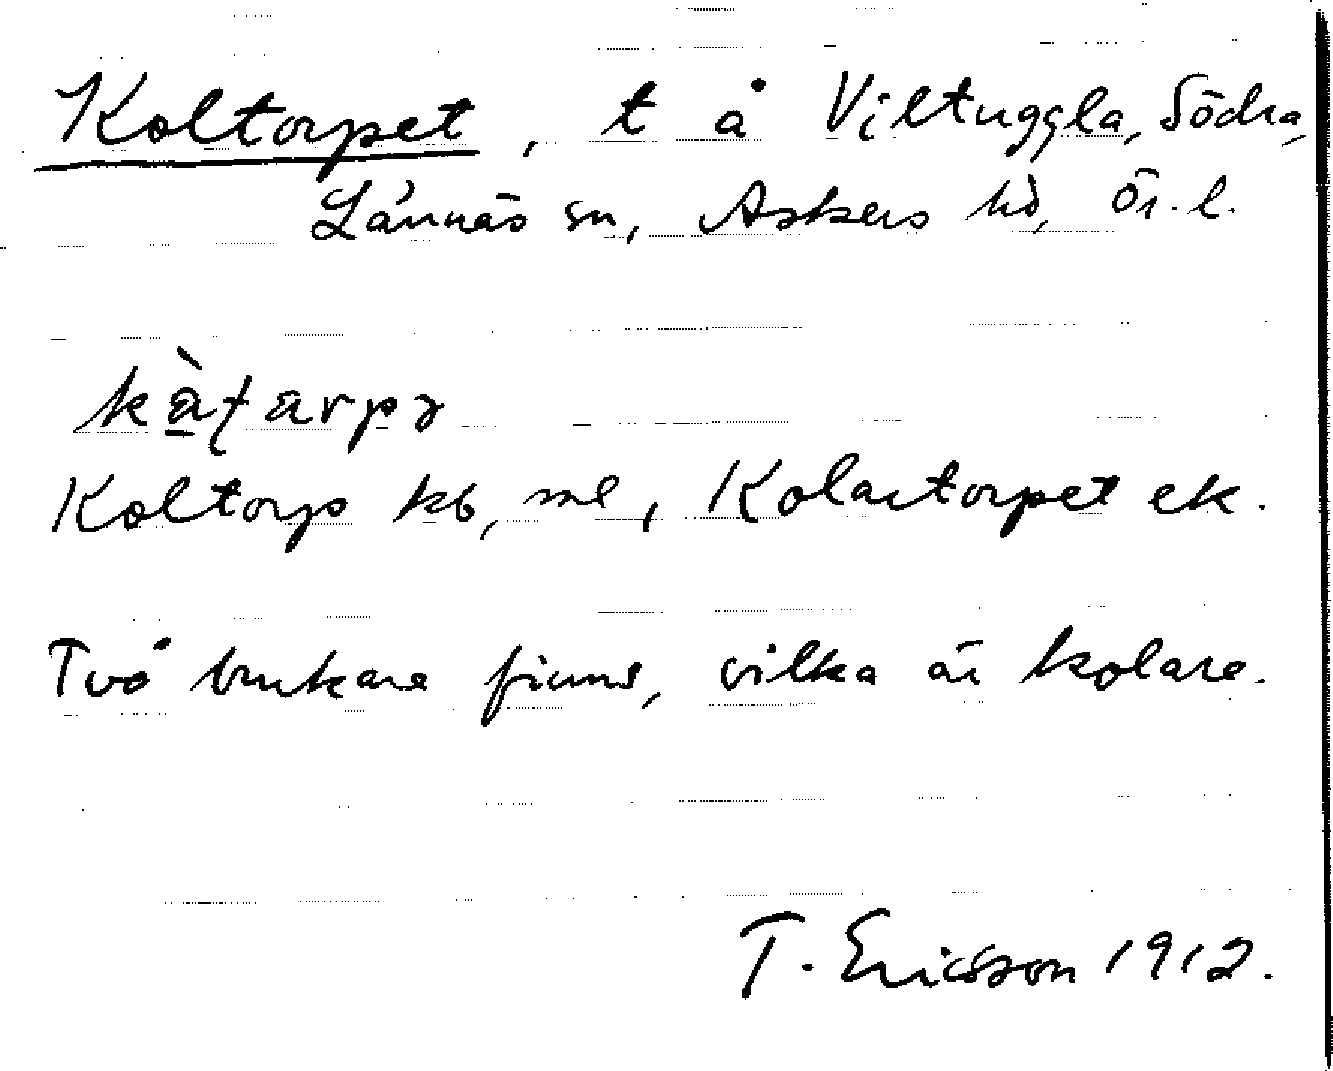 Koltorpet, t å Viltuggla, Södra,
Lännäs sn, Askers hd, Ör. l.
Koltorp kb, ml, Kolartorpet ek.
Två brukare finns, vilka är kolare.
T. Ericsson 1912.